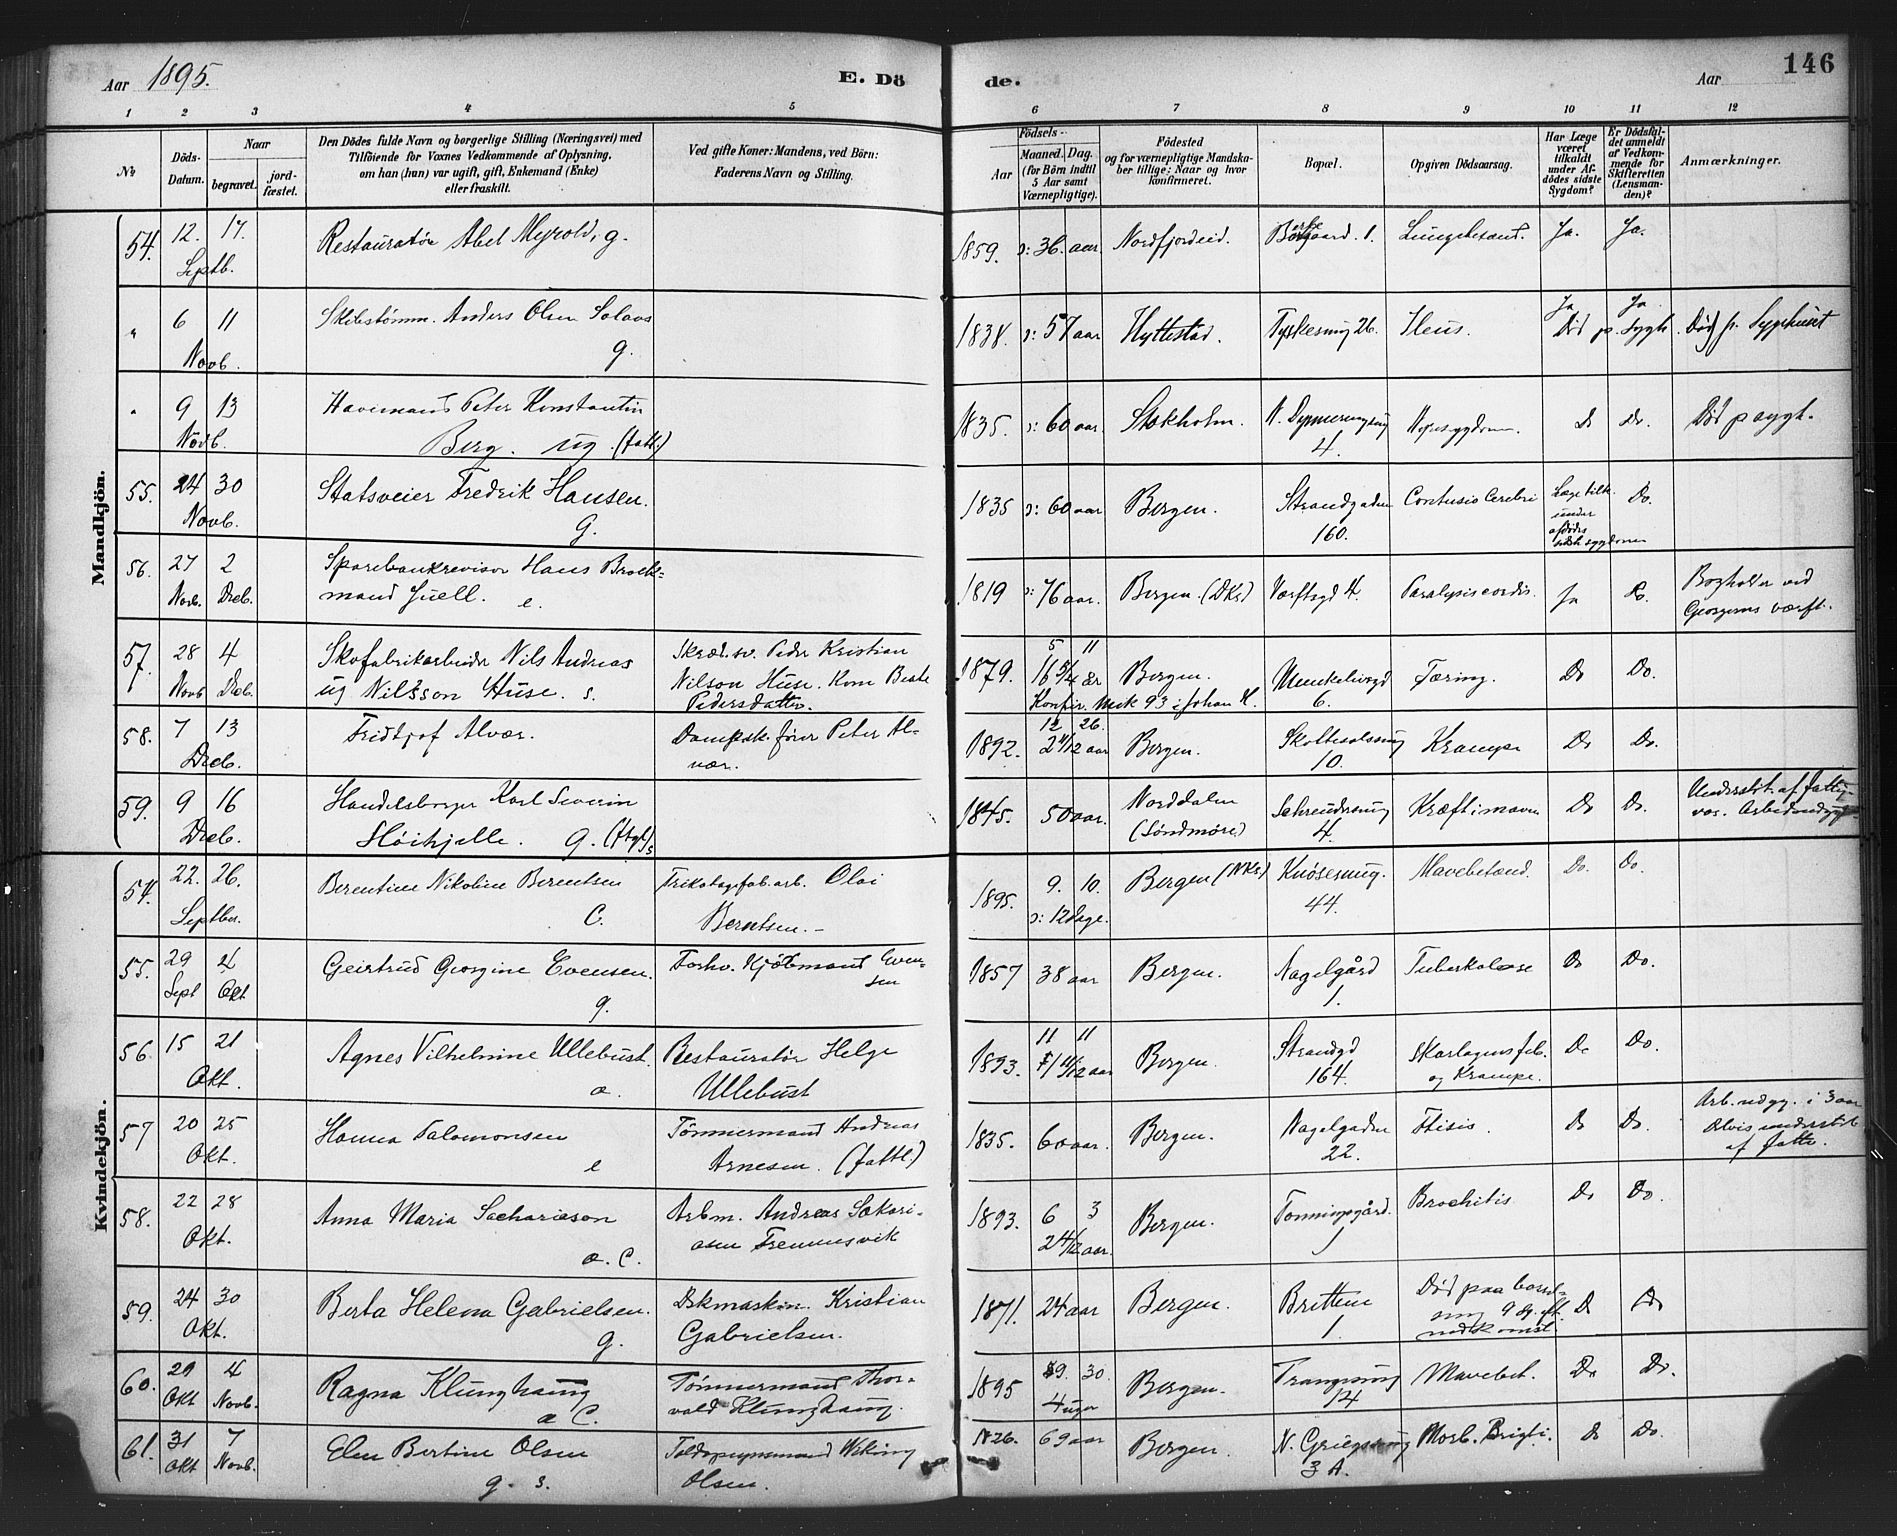 Aar 1895.
E. Dö
de.
Aar
146
1 2 3 4 5 6 7 8 9 10 11 12
No
Döds-Datum.
Naar
begravet.
jordfæstet.
Den Dödes fulde Navn og borgerlige Stilling (Næringsvei) med
Tilföiende for Voxnes Vedkommende af Oplysning,
om han (hun) var ugift, gift, Enkemand (Enke)
eller fraskilt.
Ved gifte Koner: Mandens, ved Börn:
Faderens Navn og Stilling.
Födsels-
Aar
Maaned. Dag.
(for Börn indtil
5 Aar samt
Værnepligtige).
Födested
og for værnepligtige Mandskaber tillige: Naar og hvor
konfirmeret.
Bopæl.
Opgiven Dödsaarsag.
Har Læge
været
tilkaldt
under Afdödes sidste
Sygdom?
Er Dödsfaldet anmeldt
af Vedkommende for
Skifteretten
(Lensmanden)?
Anmærkninger.
Mandkjön.
54. 12. Septb. 17. Restauratør Abel Myrold, g. 1859. ɔ: 36 aar. Nordfjordeid. 1. Lungebetænd. Ja. Ja.
" 6 11 Novb. Skibstømm. Anders Olsen g. 1838. ɔ: 57 aar Hyttestad. Tyskesmug 26. Ileus. Ja Ja Død p. Sygh. Død p. Sygehuset
" 9 13 Novb. Havnemand Peter Konstantin Berg. ug. (fattl.) 1835. ɔ: 60 aar. Stokholm. N. 4. Do Do. Død p sygh.
55. 24 30 Novb. Statsveier Fredrik Hansen. g. 1835 ɔ: 60 aar Bergen. Strandgaden 160. Contusio Cerebri Læge tilk. under afdødes sidste sygdom Do.
56. 27 Novb. 2 Dcb. Sparebankrevisor Hans Brockmand Juell. e. 1819 ɔ: 76 aar. Bergen. (DKs) Værftsgd 4. Paralysis cordis. Ja Do. Bogholder ved Georgernes værft.
57. 28 Novb 4 Dcb. Skofabrikarbeider Nils Andreas ug Nilsson Huse. s. Skræd.sv. Peder Kristian Nilson Huse. Kone Beate Pedersdatter. 1879. 5 11 16 5/4 år Bergen. Konfir. Mik 93 i Johan K. Munkelivsgd 6. Tæring. Do Do.
58. 7 13 Dcb. Fridtjof Alvær. Dampsk.fører Peter Alvær. 1892. 12 26. 2 11/12 aar Bergen. 10. Krampe Do Do.
59. 9 16 Dcb. Handelsborger Karl Severin Høihjelle. g. 1845. 50 aar. Norddalen (Søndmøre) 4. Kræft i maven Do Do. Understøt. af fattigvæs.
Kvindekjön.
54. 22. 26. Septbr. Berentine Nikoline Berentsen C. Trikotagefab.arb. Olai Berntsen. 1895. 9. 10. ɔ: 12 dage. Bergen (NKs) Knøsesmug. 44. Mavebetænd. Do. Do.
55. 29 Sept 4 Okt Geirtrud Georgine Evensen. g. Forhv. Kjøbmand Evensen 1857 38 aar Bergen. Nagelgård 1. Tuberkolose Do Do.
56. 15 21 Okt. Agnes Vilhelmine Ullebust. a. Restauratør Helge Ullebust 1893. 11 11 1 11/12 aar Bergen. Strandgd 164. Skarlagensfeb. og Krampe. Do Do.
57 20 25 Okt. Hanna Salomonsen e Tømmermand Andreas Arnesen. (fattl.) 1835. 60 aar. Bergen. Nagelgaden 22. Ftisis. Do Do. Arb. udyg. i 3 aar Delvis understøt af fattv.
58. 22 28 Okt. Anna Maria Sachariason a. C. Arbm. Andreas Sakariasen Fremmesvik 1893. 6 3 2 4/12 aar. Bergen. Tonningsgård. 1 Brochitis Do Do.
59. 24 30 Okt. Berta Helena Gabrielsen. g. Dskmaskin. Kristian Gabrielsen. 1871. 24 aar Bergen. 1. Død paa 9 dg. eft. nedkomst. Do Do
60. 29 Okt 4 Novb. Ragna Klunghaug a C. Tømmermand Thorvald Klunghaug. 1895 9. 30. 4 uger Bergen. 14 Mavebet. Do Do.
61. 31 Okt 7 Novb. Elen Bertine Olsen g. s. Viking Olsen. 26. 69 aar Bergen. N. Griegsmug 3 A. Morb. Brigti. Do Do.